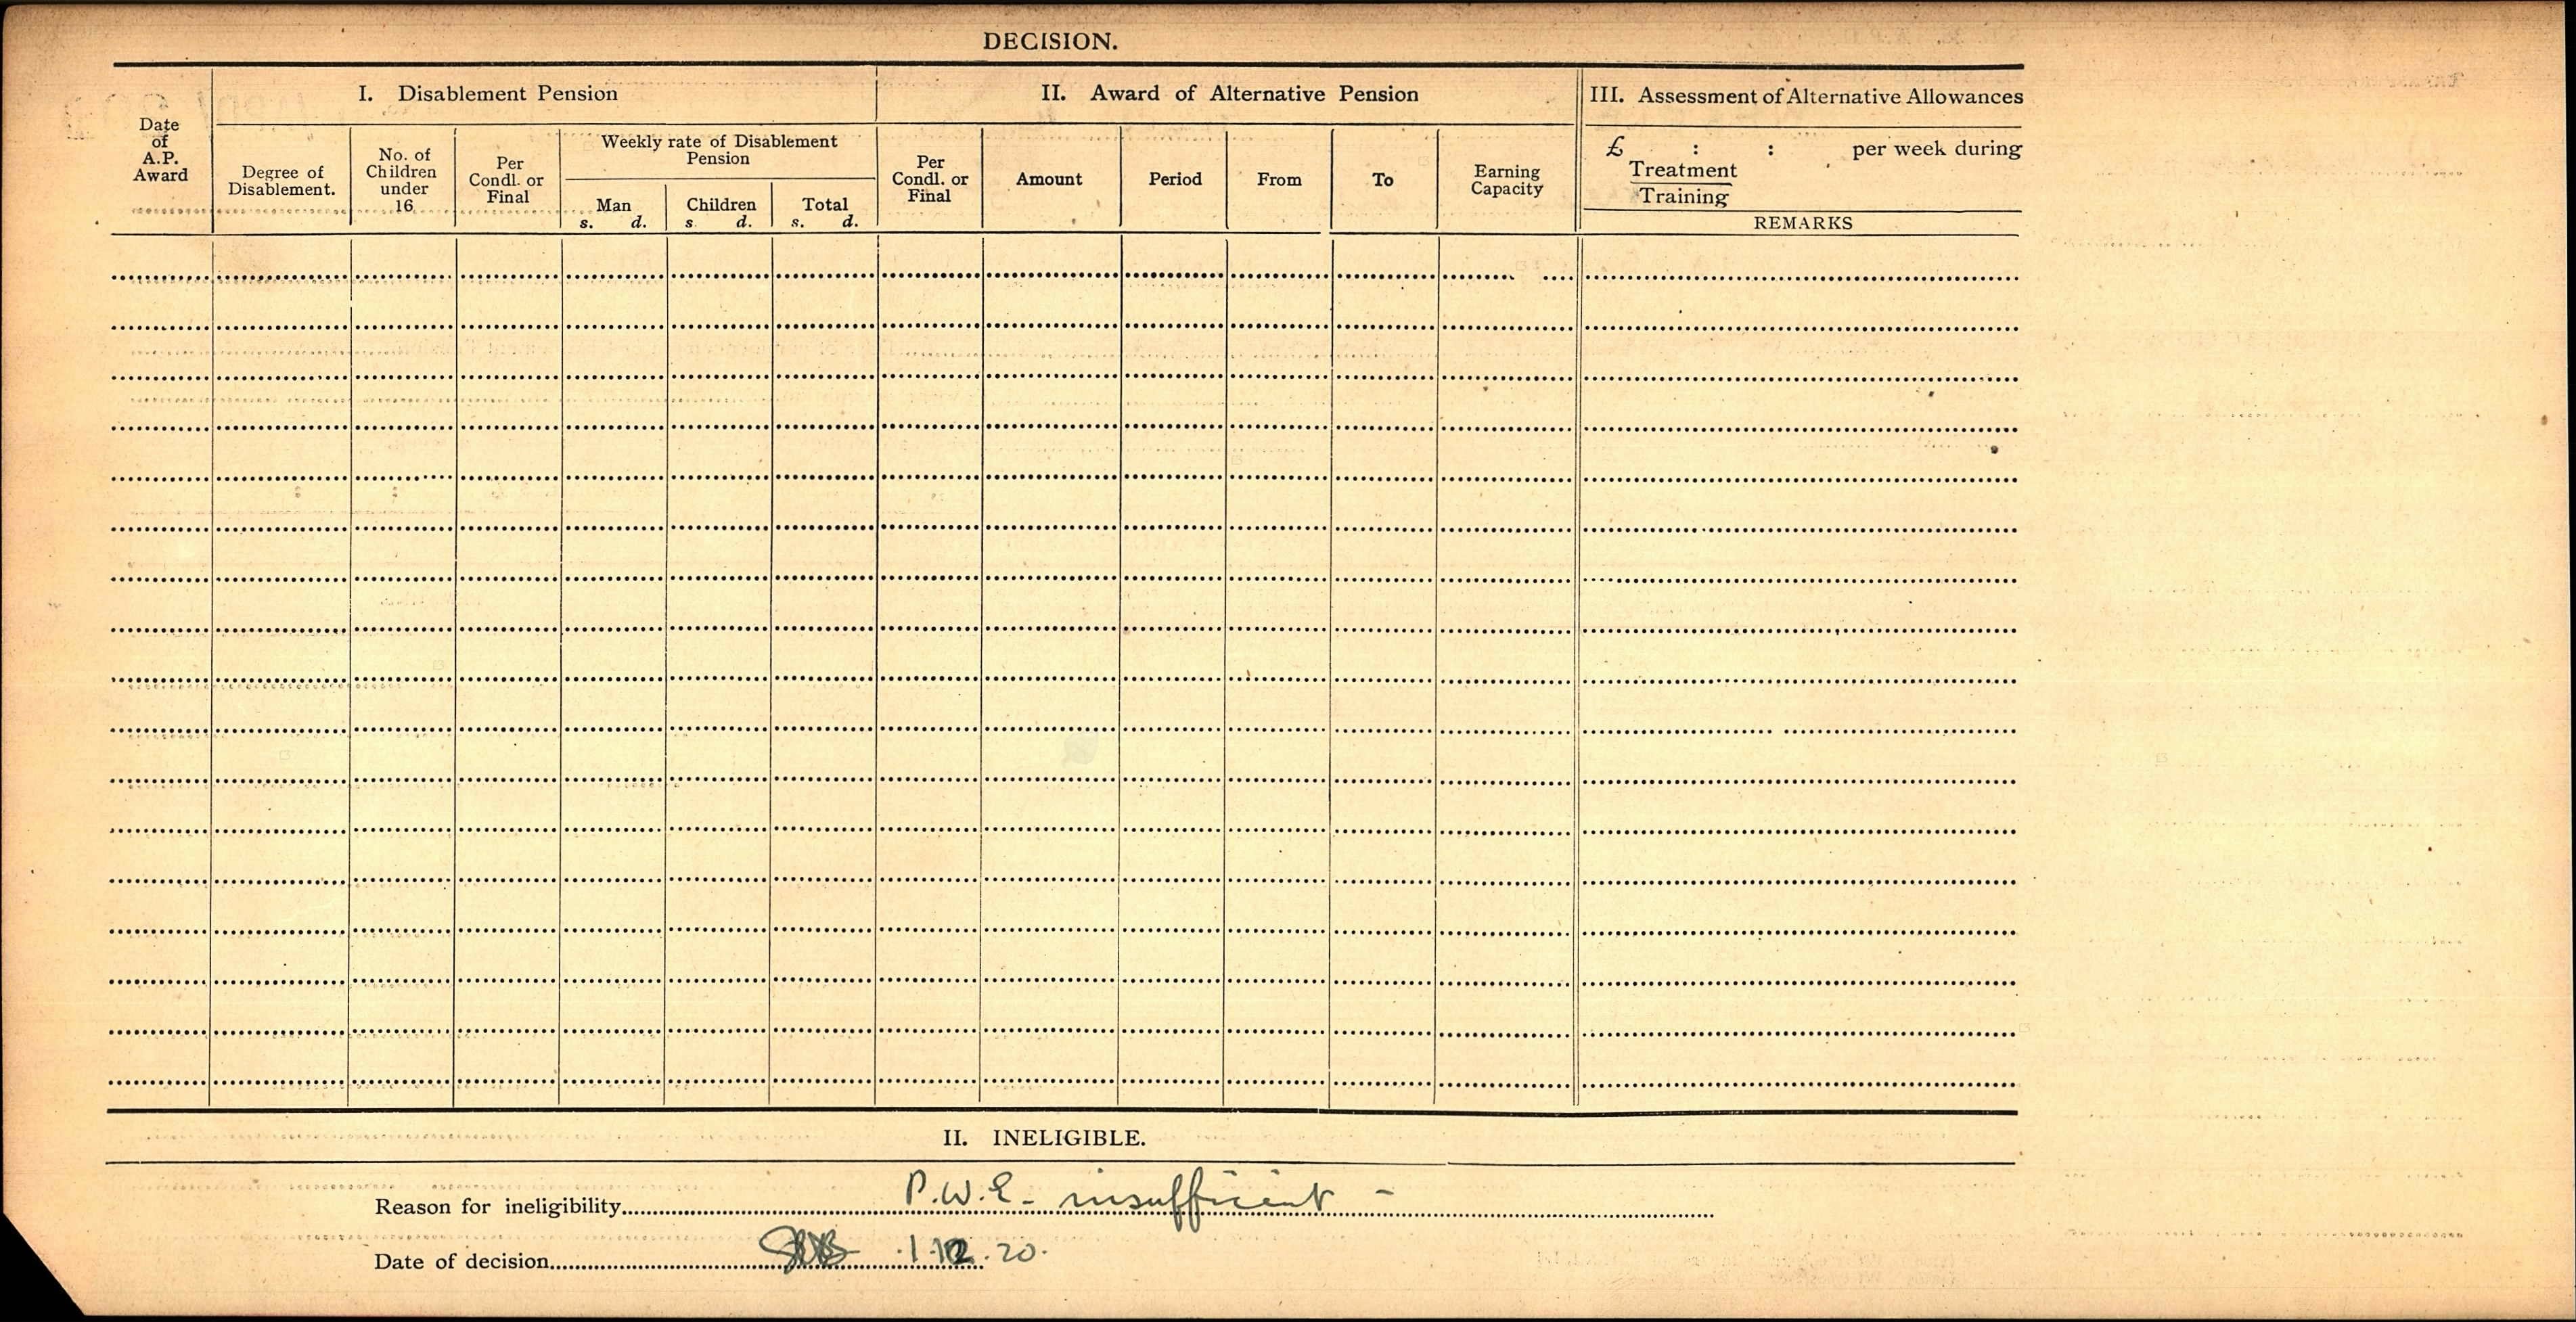 DECISION.
I. Disablement Pension
II. Award of Alternative Pension
III. Assessment of Alternative Allowances
Date of A.P. Award
Degree of Disablement.
No. of Children under 16
Per Condl. or Final
Weekly rate of Disablement Pension
Man s. d.
Children s d.
Total s. d.
Per Condl. or Final
Amount
Period
From
To
Earning Capacity
£ : : per week during
Treatment
Training
REMARKS
II. INELIGIBLE.
Reason for ineligibility P.W.E - insufficient -
Date of decision 1.12.20.